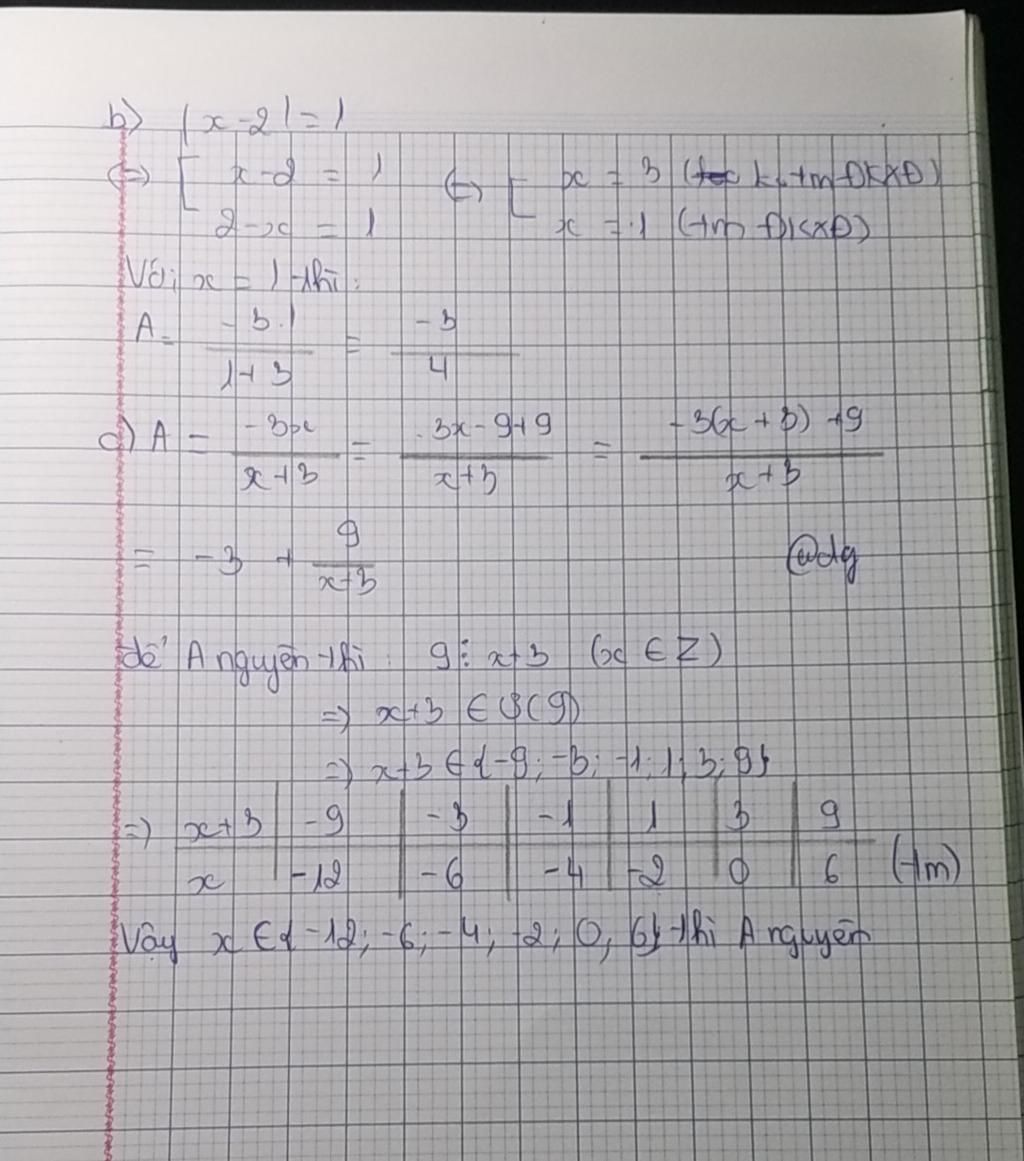 b) |x-2| = 1
<=> [ x-2 = 1 <=> [ x = 3 (k tm ĐKXĐ)
2-x = 1 x = 1 (tm ĐKXĐ)
Với x = 1 thì:
A = -3.1/1+3 = -3/4
c) A = -3x/x+3 = -3x-9+9/x+3 = -3(x+3)+9/x+3
= -3 + 9/x+3 @dg
để A nguyên thì: 9 ⋮ x+3 (x ∈ Z)
=> x+3 ∈ Ư(9)
=> x+3 ∈ {-9; -3; -1; 1; 3; 9}
=> x+3 | -9 | -3 | -1 | 1 | 3 | 9
x | -12 | -6 | -4 | -2 | 0 | 6 (tm)
Vậy x ∈ {-12; -6; -4; -2; 0; 6} thì A nguyên